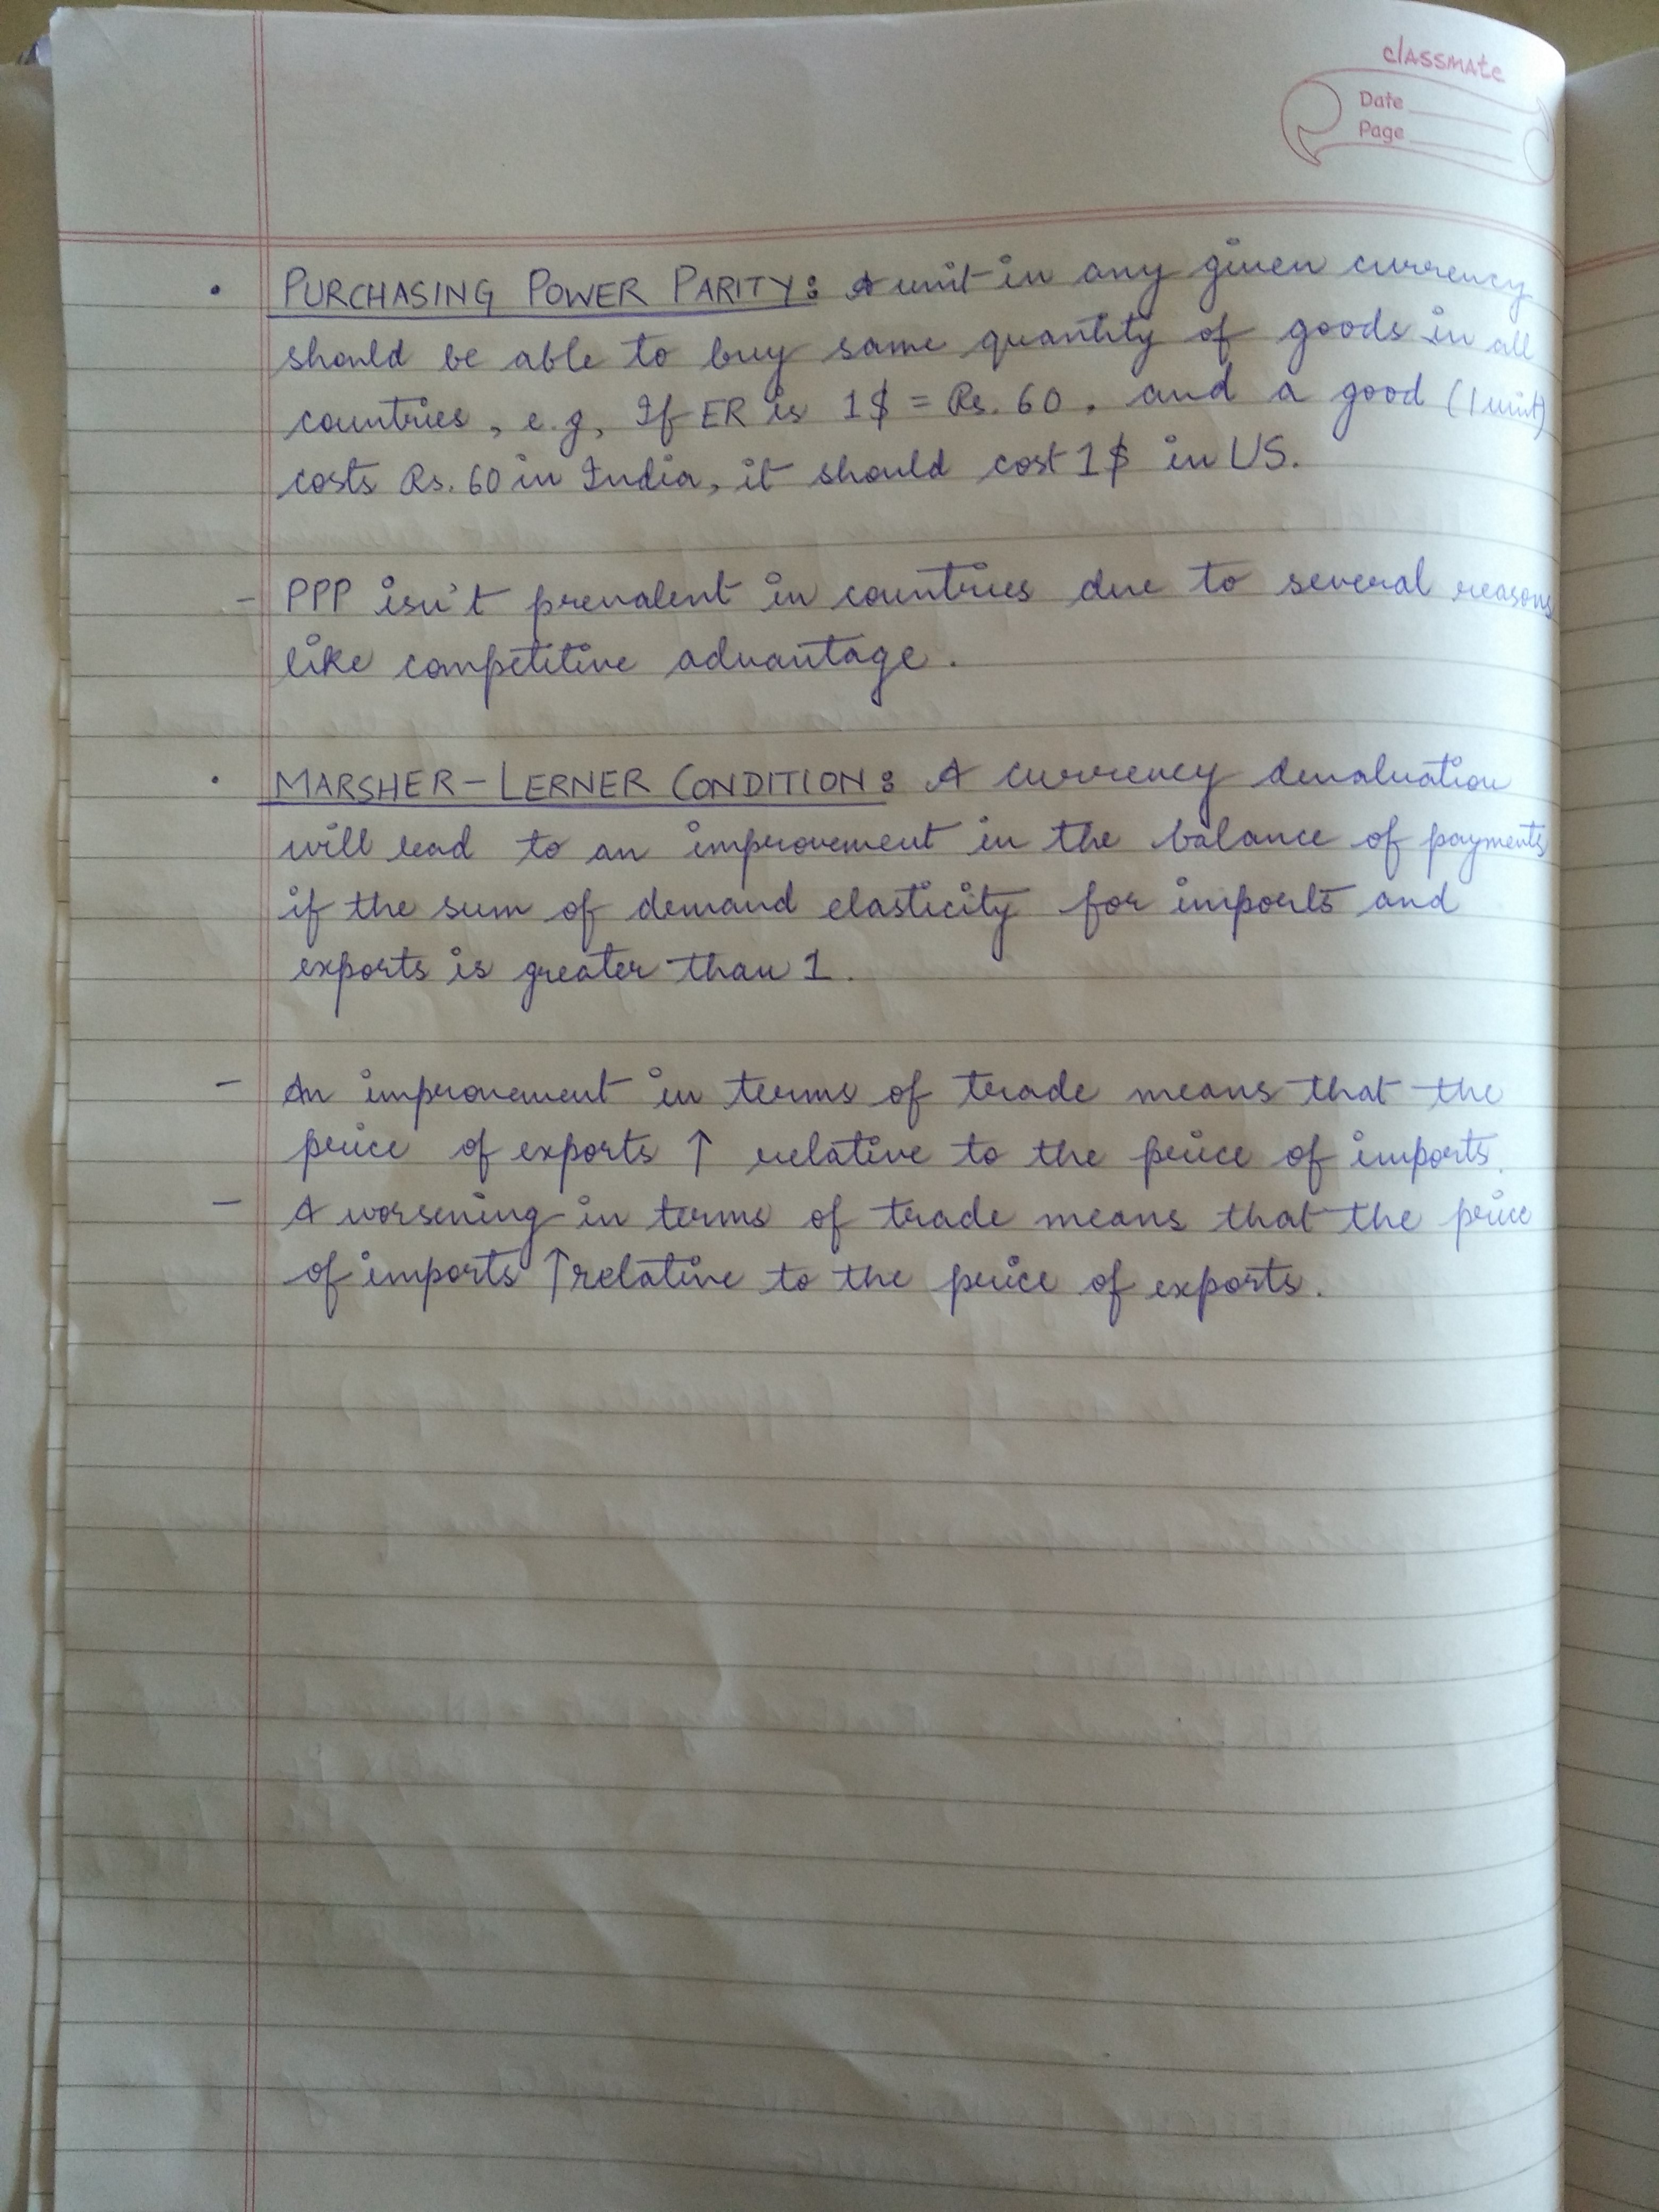 classmate
Date
Page
• PURCHASING POWER PARITY: A unit in any given currency
should be able to buy same quantity of goods in all
countries, e.g, If ER is 1$ = Rs. 60. and a good (1 unit)
costs Rs. 60 in India, it should cost 1$ in US.
- PPP isn't prevalent in countries due to several reasons
like competitive advantage.
• MARSHER-LERNER CONDITION: A currency devaluation
will lead to an improvement in the balance of payments
if the sum of demand elasticity for imports and
exports is greater than 1.
- An improvement in terms of trade means that the
price of exports ↑ relative to the price of imports.
- A worsening in terms of trade means that the price
of imports ↑ relative to the price of exports.